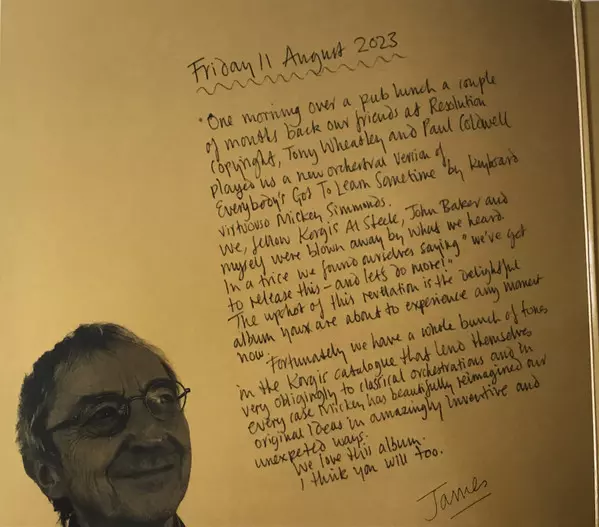 Friday 11 August 2023
"One morning over a pub lunch a couple
of months back our friends at Resolution
Copyright, Tony Wheatley and Paul Coldwell
played us a new orchestral version of
Everybody's Got To Learn Sometime by keyboard
virtuoso Mickey Simmonds.
We, fellow Korgis Al Steele, John Baker and
myself were blown away by what we heard.
In a trice we found ourselves saying "we've got
to release this – and let's do more!"
The upshot of this revelation is the delightful
album you are about to experience any moment
now. Fortunately we have a whole bunch of tunes
in the Korgis catalogue that lend themselves
very obligingly to classical orchestrations and in
every case Mickey has beautifully reimagined our
original ideas in amazingly inventive and
unexpected ways.
We love this album.
I think you will too.
James